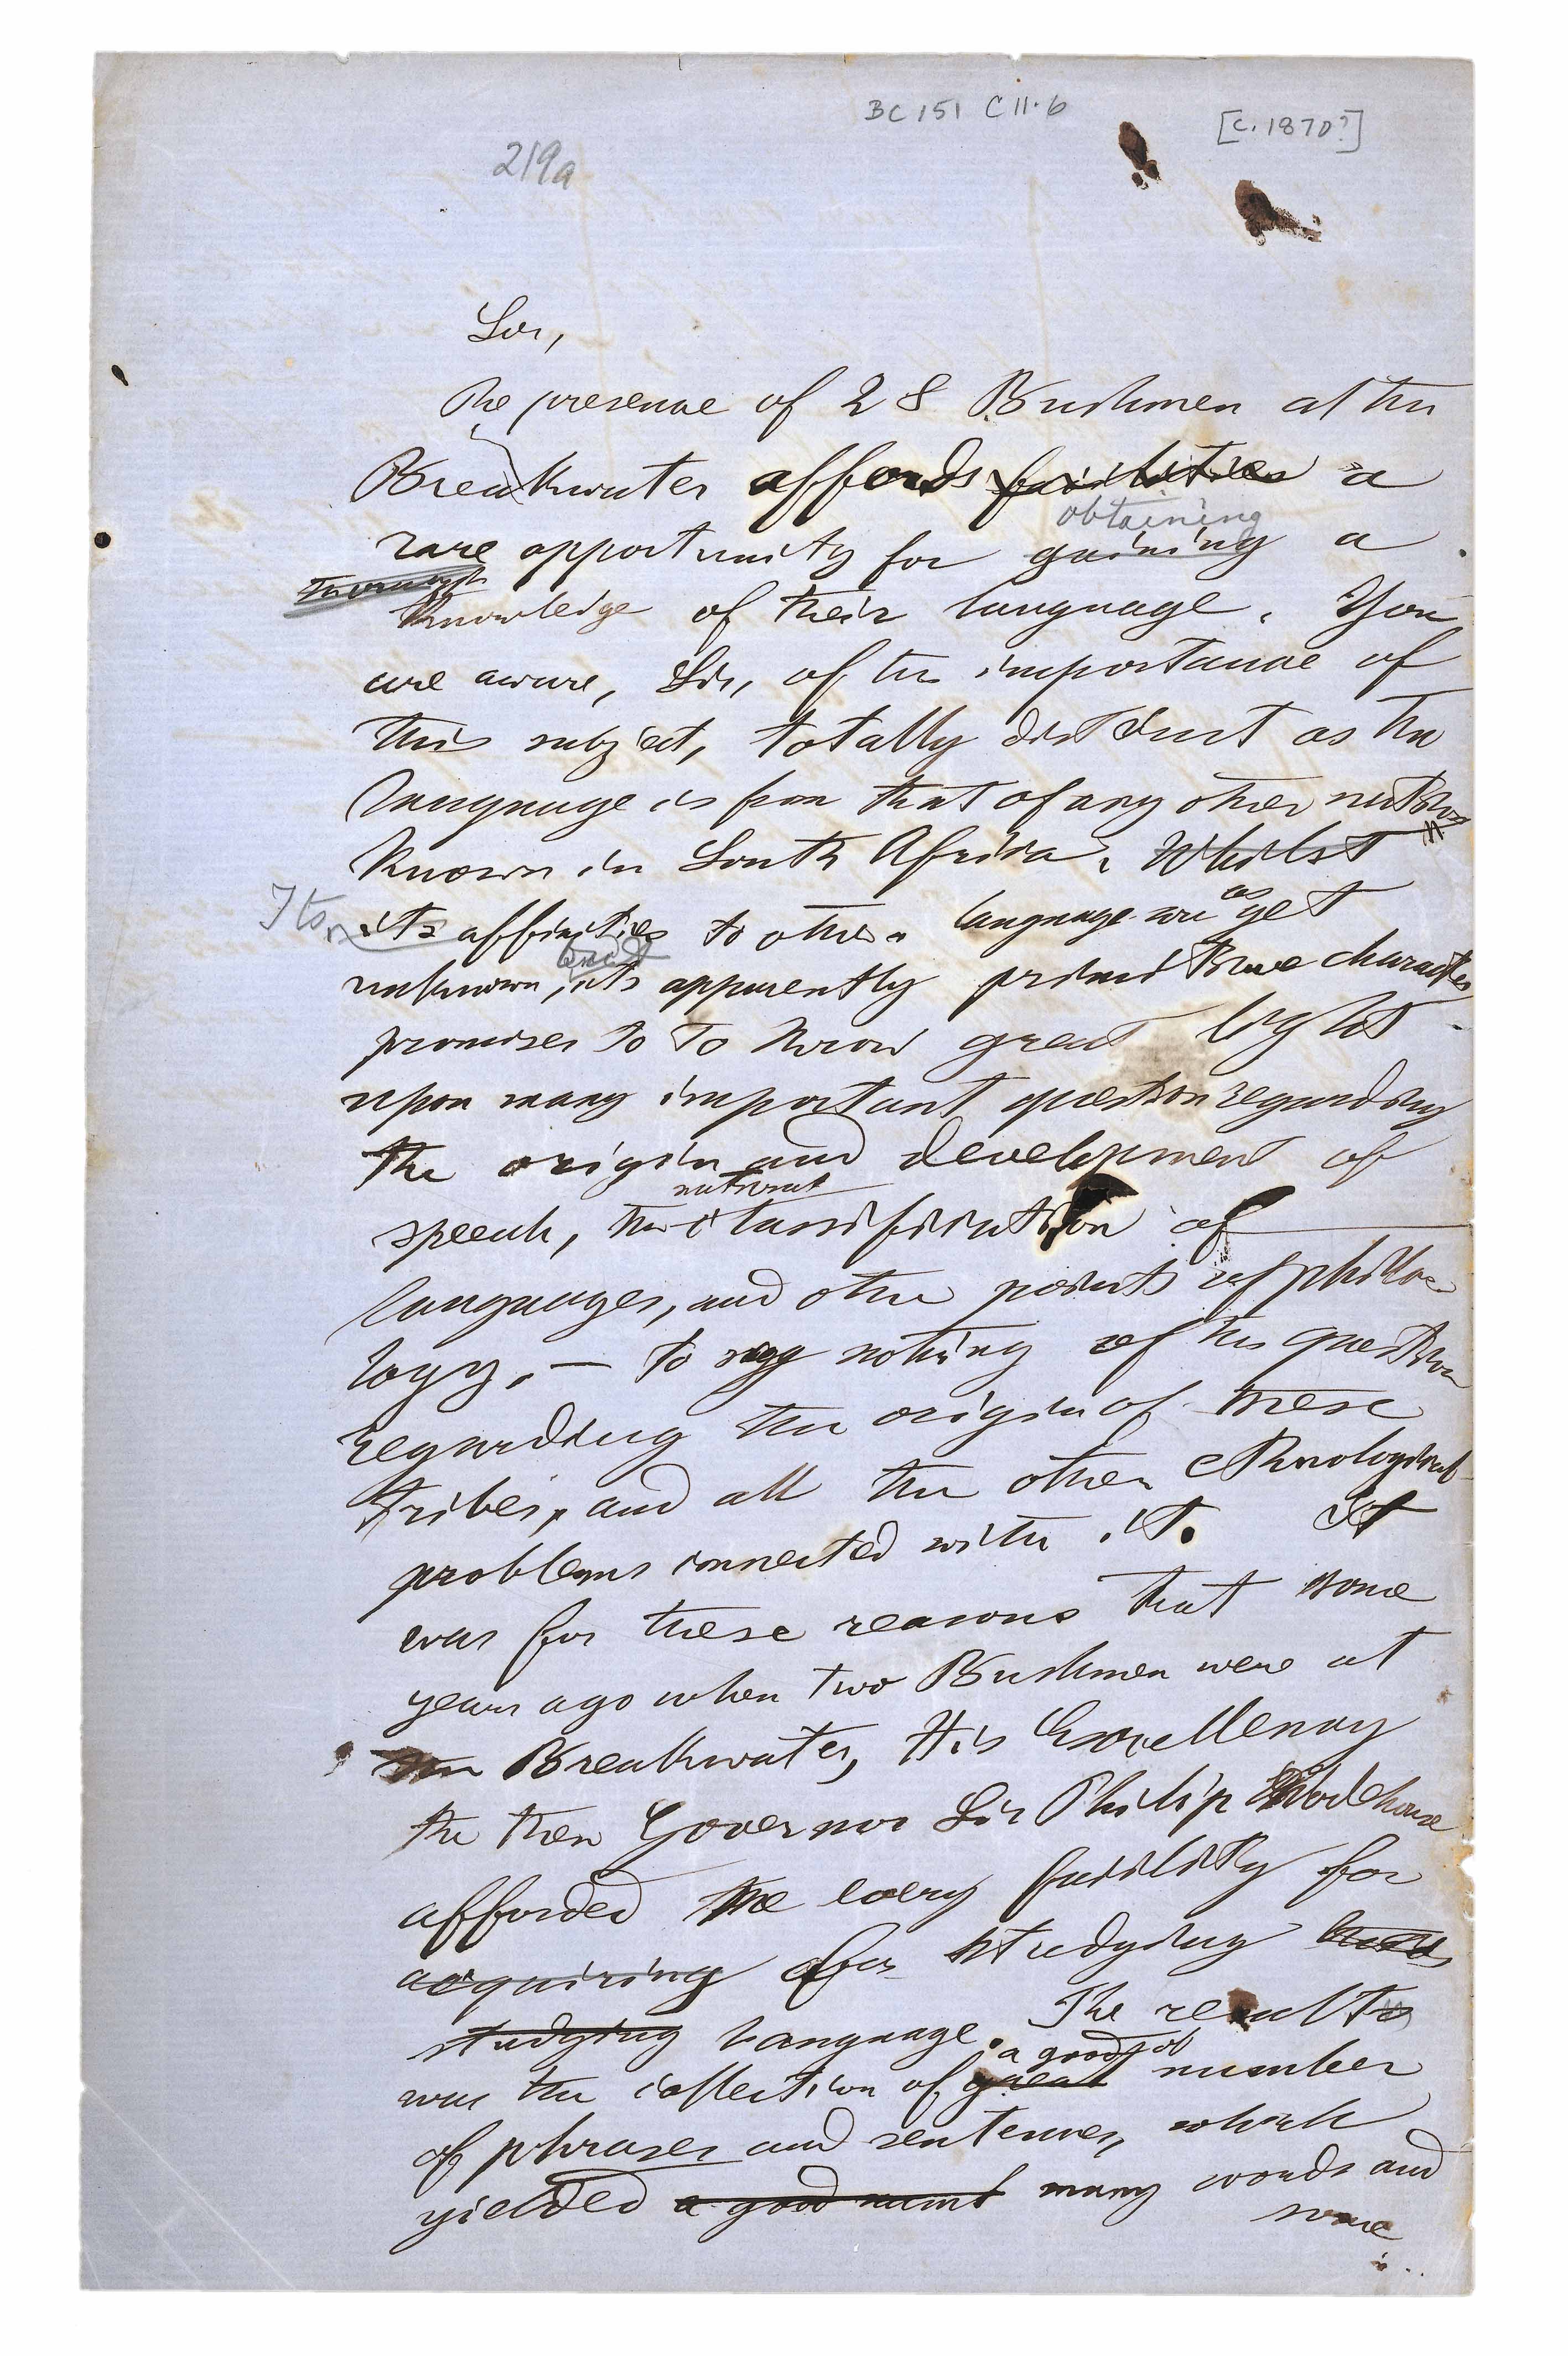 BC 151 C 11.6
[c. 1870?]
219a
Sir,
The presence of 28 Bushmen at the
Breakwater affords facilities a
obtaining
rare opportunity for gaining a
thorough
knowledge of their language. You
are aware, Sir, of the importance of
this subject, totally distinct as the
language is from that of any other nation
known in South Africa. Whilst
as
Its its affinities to other language are yet
and
unknown, its apparently primitive character
promises to to throw great light
upon many important question regarding
the origin and development of
natural
speech, the classification of
languages, and other points of philo-
logy, — to say nothing of the question
regarding the origin of these
tribes, and all the other ethnological
problems connected with it. It
was for these reasons that some
years ago when two Bushmen were at
the Breakwater, His Excellency
the then Governor Sir Philip Wodehouse
afforded me every facility for
acquiring for studying their
studying language. The results
a good
was the collection of great number
of phrases and sentences, which
yielded a good numb many words and
some